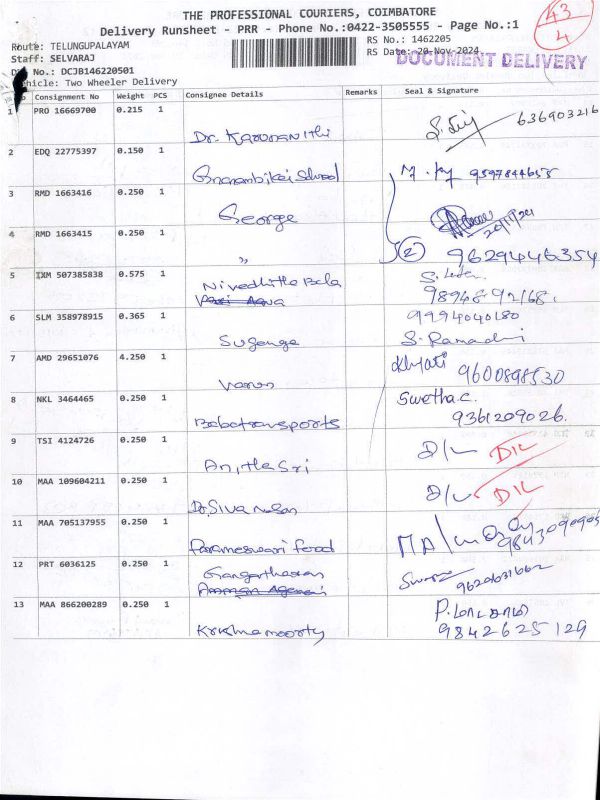 THE PROFESSIONAL COURIERS, COIMBATORE
Delivery Runsheet - PRR - Phone No.:0422-3505555 - Page No.:1
43
4
Route: TELUNGUPALAYAM
RS No.: 1462205
Staff: SELVARAJ
RS Date: 20-Nov-2024
DOCUMENT DELIVERY
No.: DCJB146220501
Vehicle: Two Wheeler Delivery
No Consignment No Weight PCS Consignee Details Remarks Seal & Signature
1 PRO 16669700 0.215 1 Dr. Karunanithi 636903216
2 EDQ 22775397 0.150 1 Gnanambikai School 9597844655
3 RMD 1663416 0.250 1 George 20/11/24
4 RMD 1663415 0.250 1 " 2 9629446354
5 IXM 507385838 0.575 1 Nivedhitha Bala
6 SLM 358978915 0.365 1 Suganya 9994040180
S. Ramadevi
7 AMD 29651076 4.250 1 Varun Khyati 9600898530
8 NKL 3464465 0.250 1 Baba transports Swetha.C.
9361209026.
9 TSI 4124726 0.250 1 Anitha Sri D/L D/L
10 MAA 109604211 0.250 1 Dr. Siva D/L D/L
11 MAA 705137955 0.250 1 Parameswari food
12 PRT 6036125 0.250 1
13 MAA 866200289 0.250 1 Krishnamoorty 9842625129